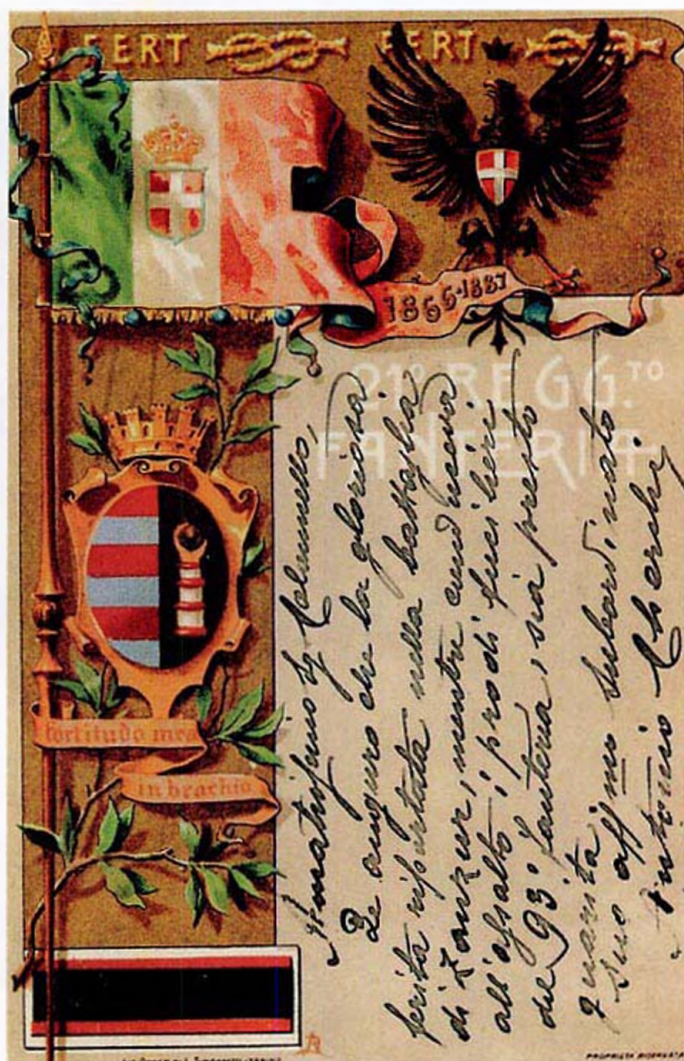 FERT FERT
1866-1887
21º REGG.TO
FANTERIA
fortitudo mea
in brachio
Sig Colonnello,
Le auguro che la gloriosa
ferita riportata nella battaglia
di Zanzur, mentre conduceva
all'assalto i prodi fucilieri
del 93º fanteria, sia presto
guarita.
Suo aff.mo subordinato
Antonio Cherchi
PROPRIETA RISERVATA